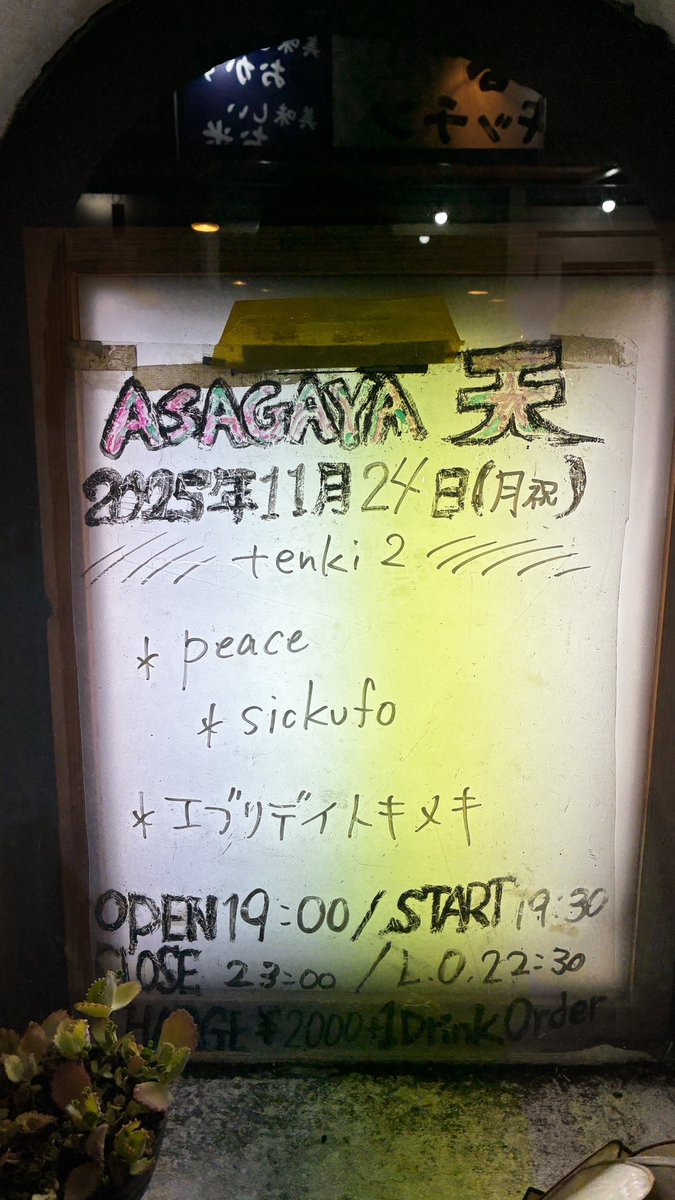 美味しい
おか
美味しい
お米
キッチン
ASAGAYA 天
2025年11月24日(月祝)
tenki 2
* peace
* sickufo
* エブリデイトキメキ
OPEN 19:00 / START 19:30
CLOSE 23:00 / L.O. 22:30
CHARGE ¥2000+1Drink Order